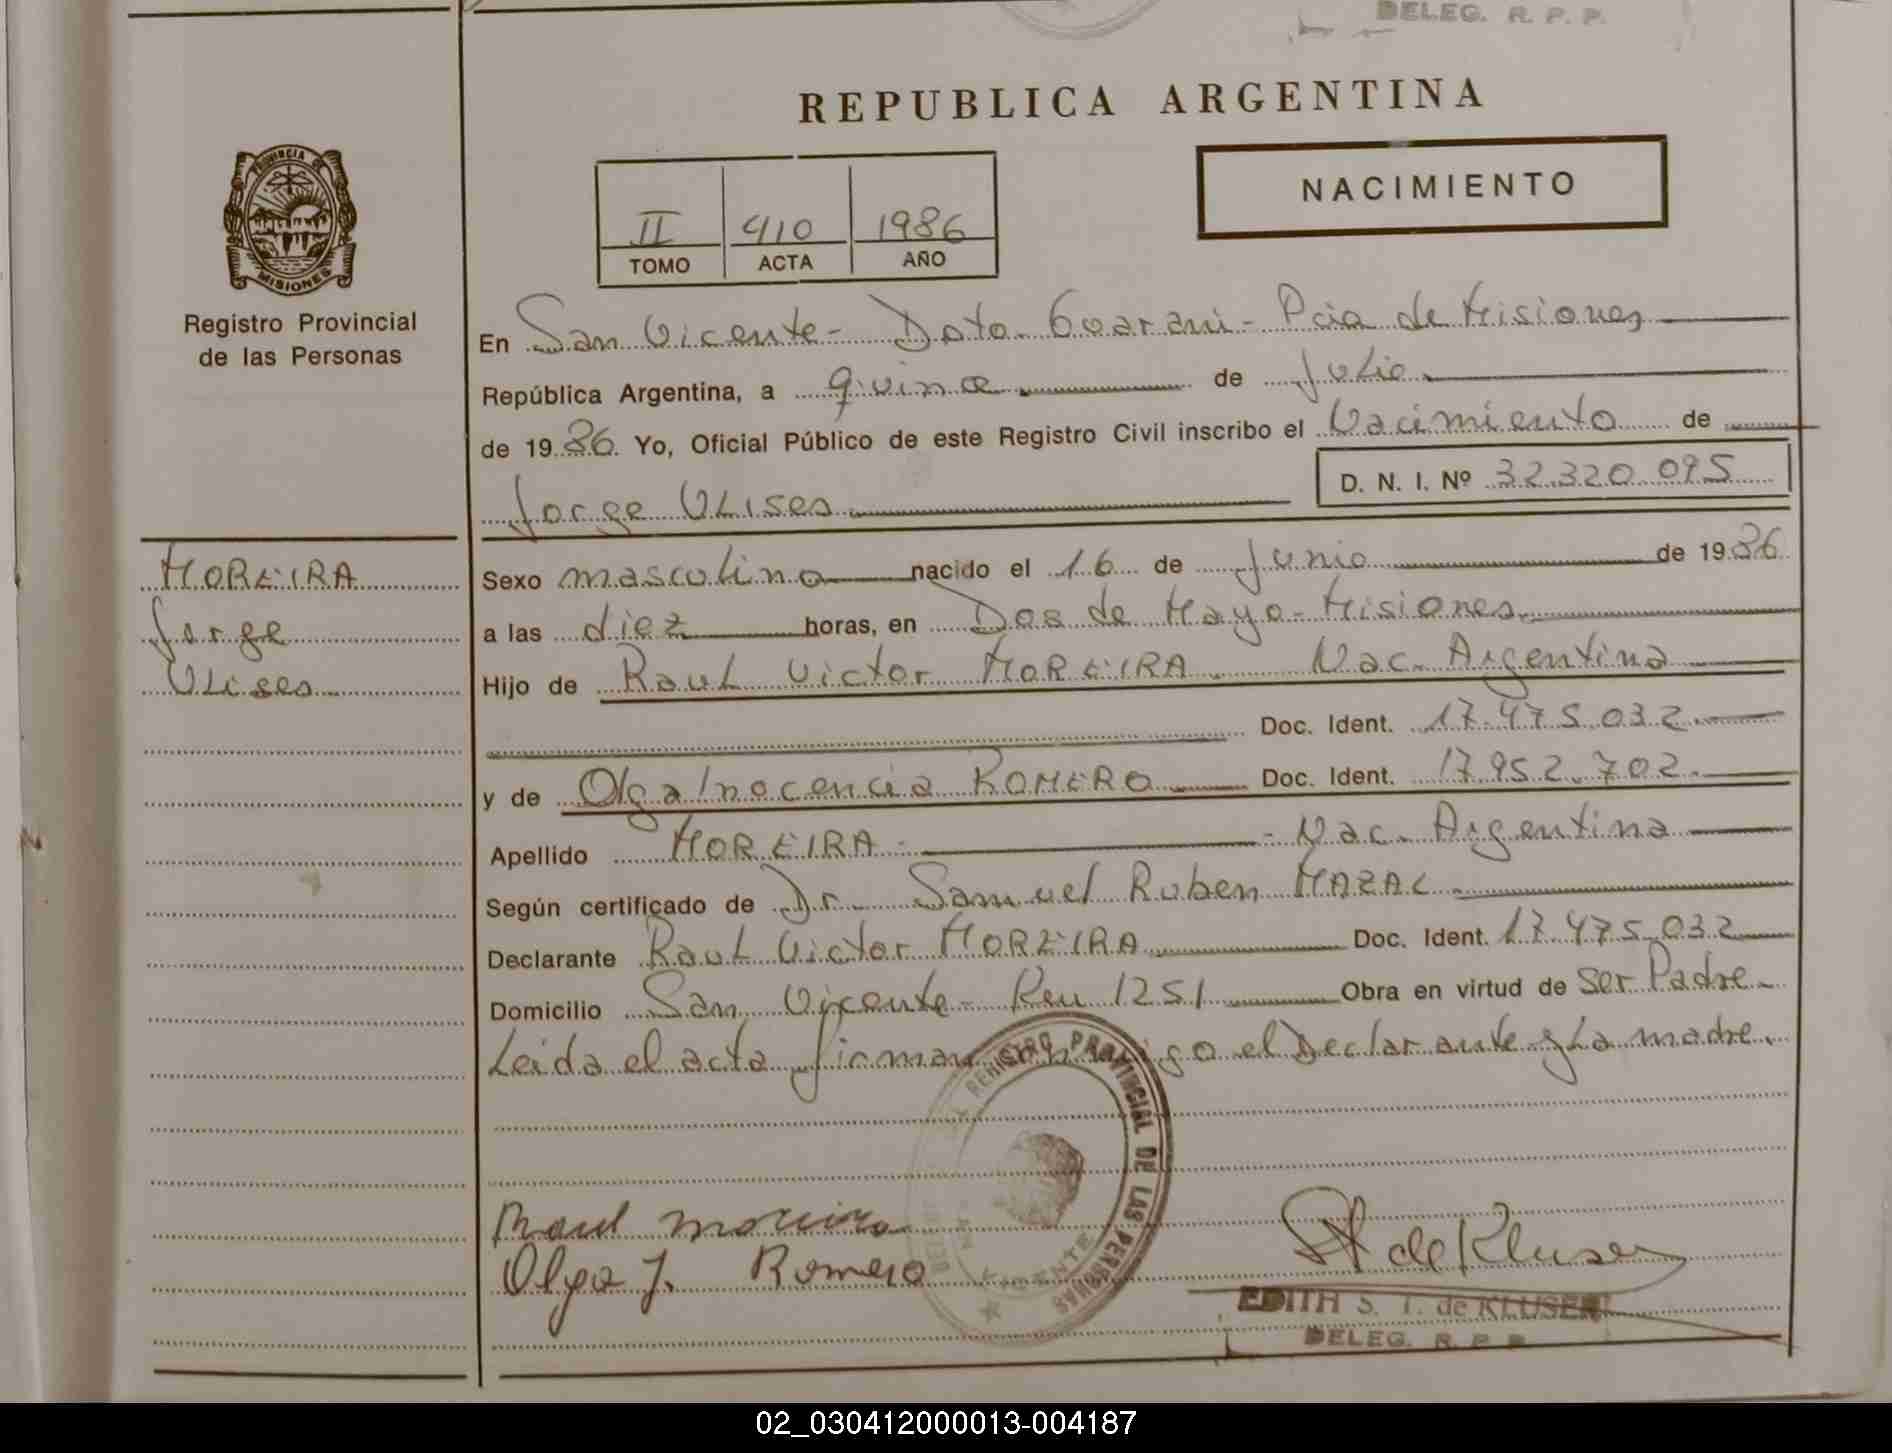 DELEG. R. P. P.
REPUBLICA ARGENTINA
NACIMIENTO
II 410 1986
TOMO ACTA AÑO
PROVINCIA DE
MISIONES
Registro Provincial
de las Personas
En San Vicente - Dpto. Guarani - Pcia de Misiones
República Argentina, a quince de Julio
de 1986. Yo, Oficial Público de este Registro Civil inscribo el Nacimiento de
Jorge Ulises D. N. I. Nº 32.320.095
MOREIRA
Jorge
Ulises
Sexo masculino nacido el 16 de Junio de 1986
a las diez horas, en Dos de Mayo - Misiones
Hijo de Raul Victor MOREIRA Nac. Argentina
Doc. Ident. 17.475.032
y de Olga Inocencia ROMERO Doc. Ident. 17.952.702.
Apellido MOREIRA - - Nac. Argentina
Según certificado de Dr. Samuel Ruben MAZAL
Declarante Raul Victor MOREIRA Doc. Ident. 17.475.032
Domicilio San Vicente - Km 1251 Obra en virtud de ser Padre.-
Leida el acta firman conmigo el Declarante y La madre.
REGISTRO PROVINCIAL DE LAS PERSONAS
VICENTE
Raul Moreira
Olga I. Romero
de Kluser
EDITH S. T. de KLUSER
DELEG. R. P. P.
02_030412000013-004187